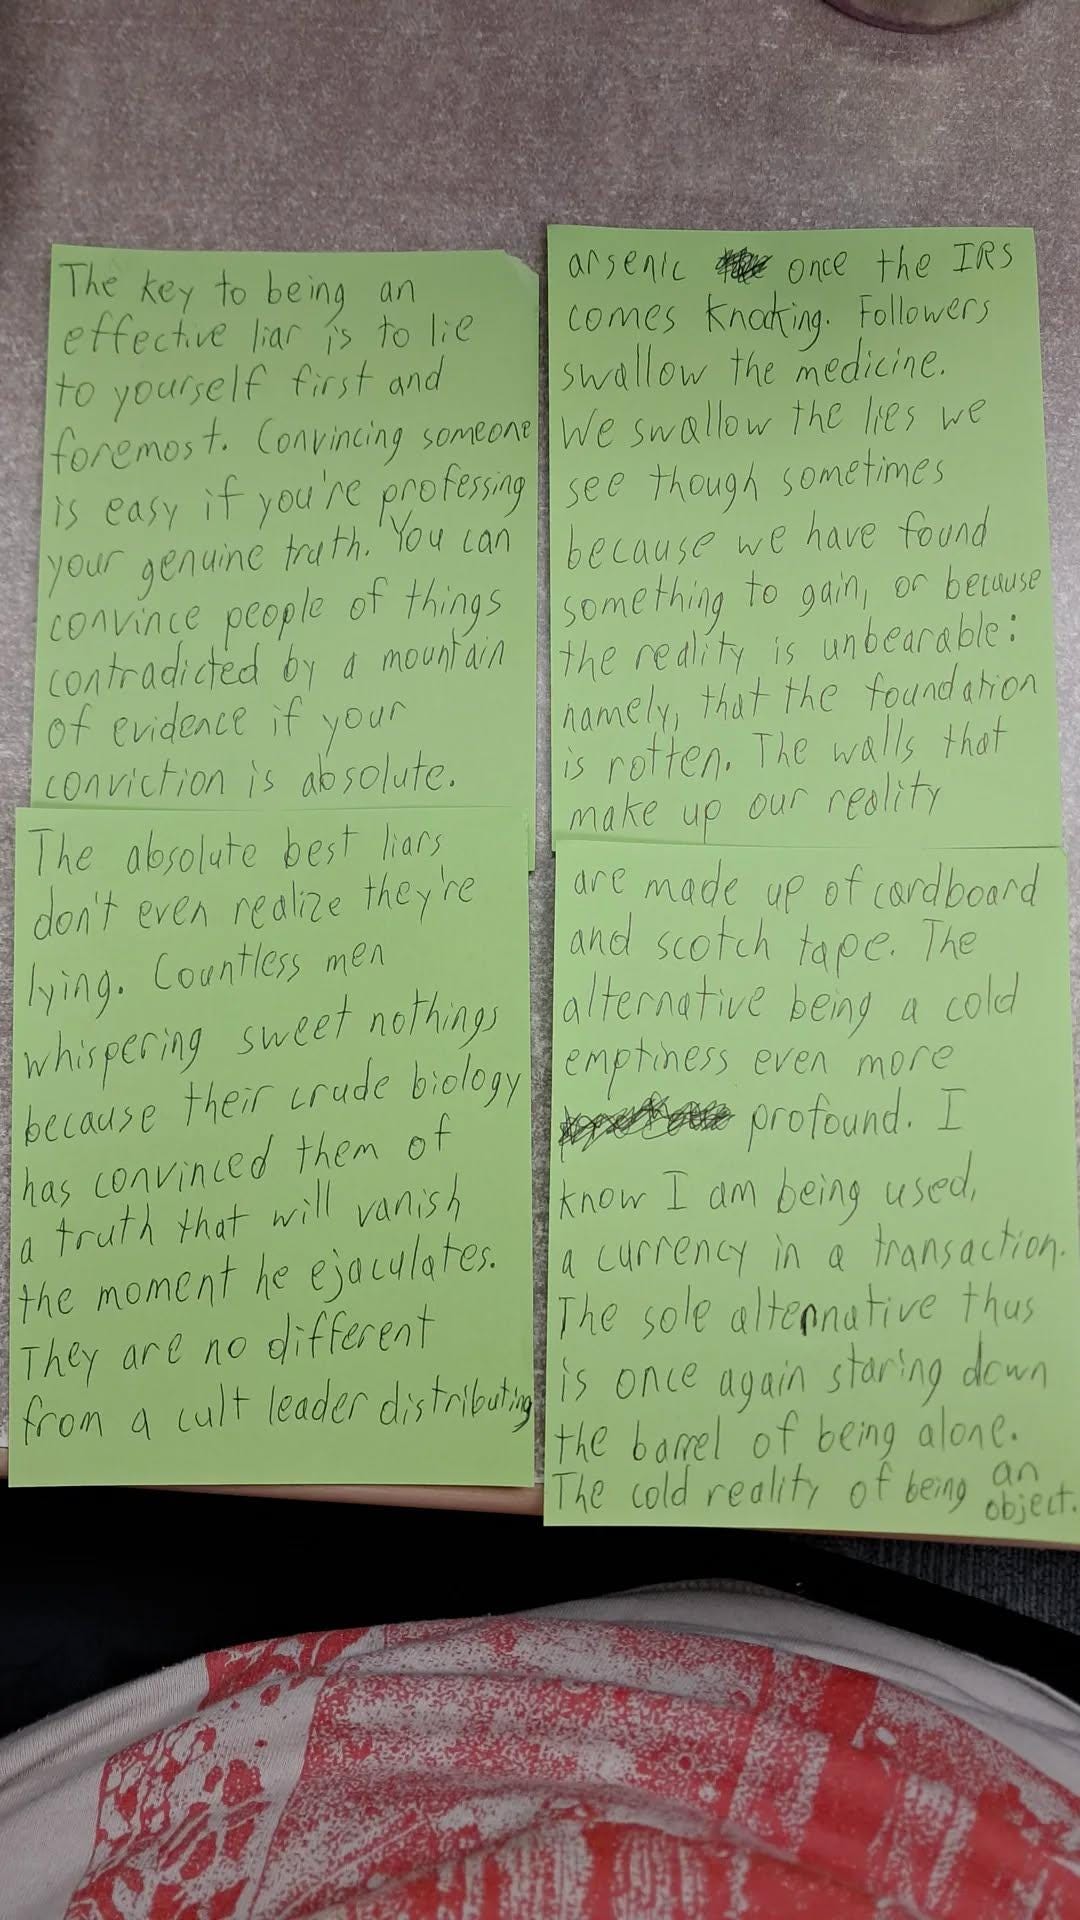 The key to being an
effective liar is to lie
to yourself first and
foremost. Convincing someone
is easy if you're professing
your genuine truth. You can
convince people of things
contradicted by a mountain
of evidence if your
conviction is absolute.
The absolute best liars
don't even realize they're
lying. Countless men
whispering sweet nothings
because their crude biology
has convinced them of
a truth that will vanish
the moment he ejaculates.
They are no different
from a cult leader distributing
arsenic once the IRS
comes knocking. Followers
swallow the medicine.
We swallow the lies we
see though sometimes
because we have found
something to gain, or because
the reality is unbearable:
namely, that the foundation
is rotten. The walls that
make up our reality
are made up of cardboard
and scotch tape. The
alternative being a cold
emptiness even more
profound. I
know I am being used,
a currency in a transaction.
The sole alternative thus
is once again staring down
the barrel of being alone.
The cold reality of being an
object.